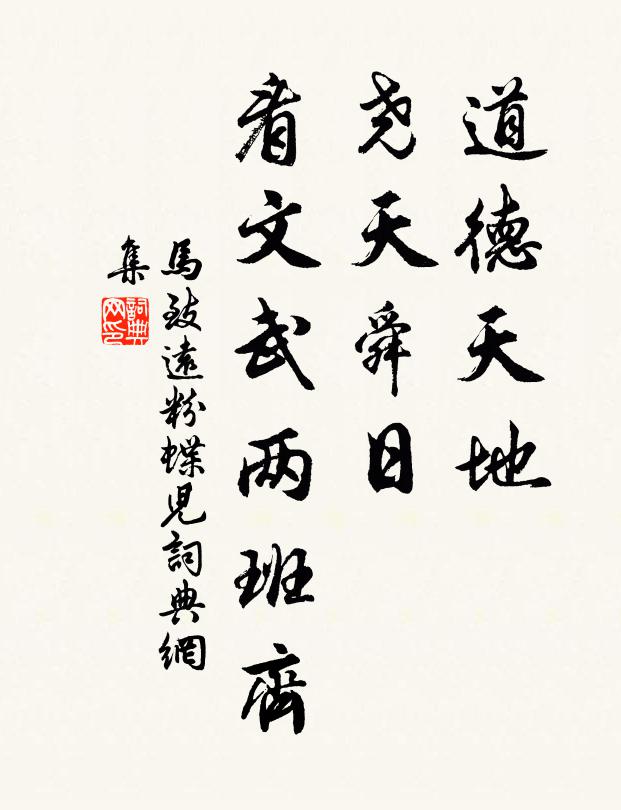 道德天地
尧天舜日
看文武两班齊
馬致遠粉蝶児詞典網
集
詞典
网印